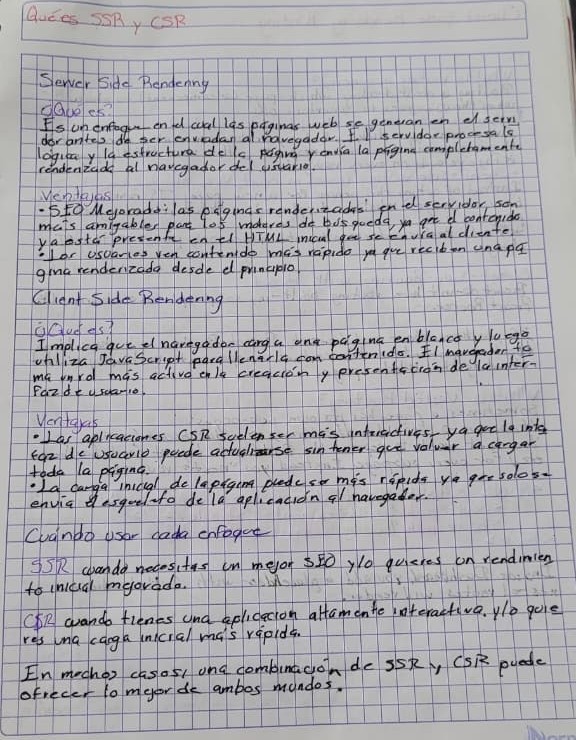 Qué es SSR y CSR
Server Side Rendering
¿Qué es?
Es un enfoque en el cual las páginas web se generan en el servi
dor antes de ser enviadas al navegador. El servidor procesa la
lógica y la estructura de la página y envía la página completamente
renderizada al navegador del usuario.
Ventajas
• SEO Mejorado: las páginas renderizadas en el servidor son
más amigables para los motores de búsqueda, ya que el contenido
ya está presente en el HTML inicial que se envía al cliente.
• Los usuarios ven contenido más rápido ya que reciben una pá
gina renderizada desde el principio.
Client Side Rendering
¿Qué es?
Implica que el navegador carga una página en blanco y luego
utiliza JavaScript para llenarla con contenido. El navegador to
ma un rol más activo en la creación y presentación de la inter-
faz de usuario.
Ventajas
• Las aplicaciones CSR suelen ser más interactivas, ya que la inte
faz de usuario puede actualizarse sin tener que volver a cargar
toda la página.
• La carga inicial de la página puede ser más rápida ya que solo se
envía el esqueleto de la aplicación al navegador.
Cuándo usar cada enfoque
SSR cuando necesitas un mejor SEO y/o quieres un rendimien
to inicial mejorado.
CSR cuando tienes una aplicación altamente interactiva. y/o quie
res una carga inicial más rápida.
En muchos casos, una combinación de SSR y CSR puede
ofrecer lo mejor de ambos mundos.